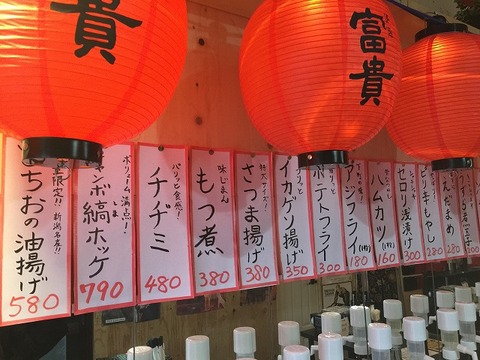 貴
富貴
数量限定!! 新潟名産!!
ちおの油揚げ
580
ボリューム満点!
ジャンボ縞ホッケ
790
パリッと食感!
チヂミ
480
味じまん
もつ煮
380
特大サイズ!
さつま揚げ
380
イカゲソ揚げ
350
ポテトフライ
300
アジフライ
180
ハムカツ
160
セロリ浅漬け
300
ピリキもやし
280
えだまめ
280